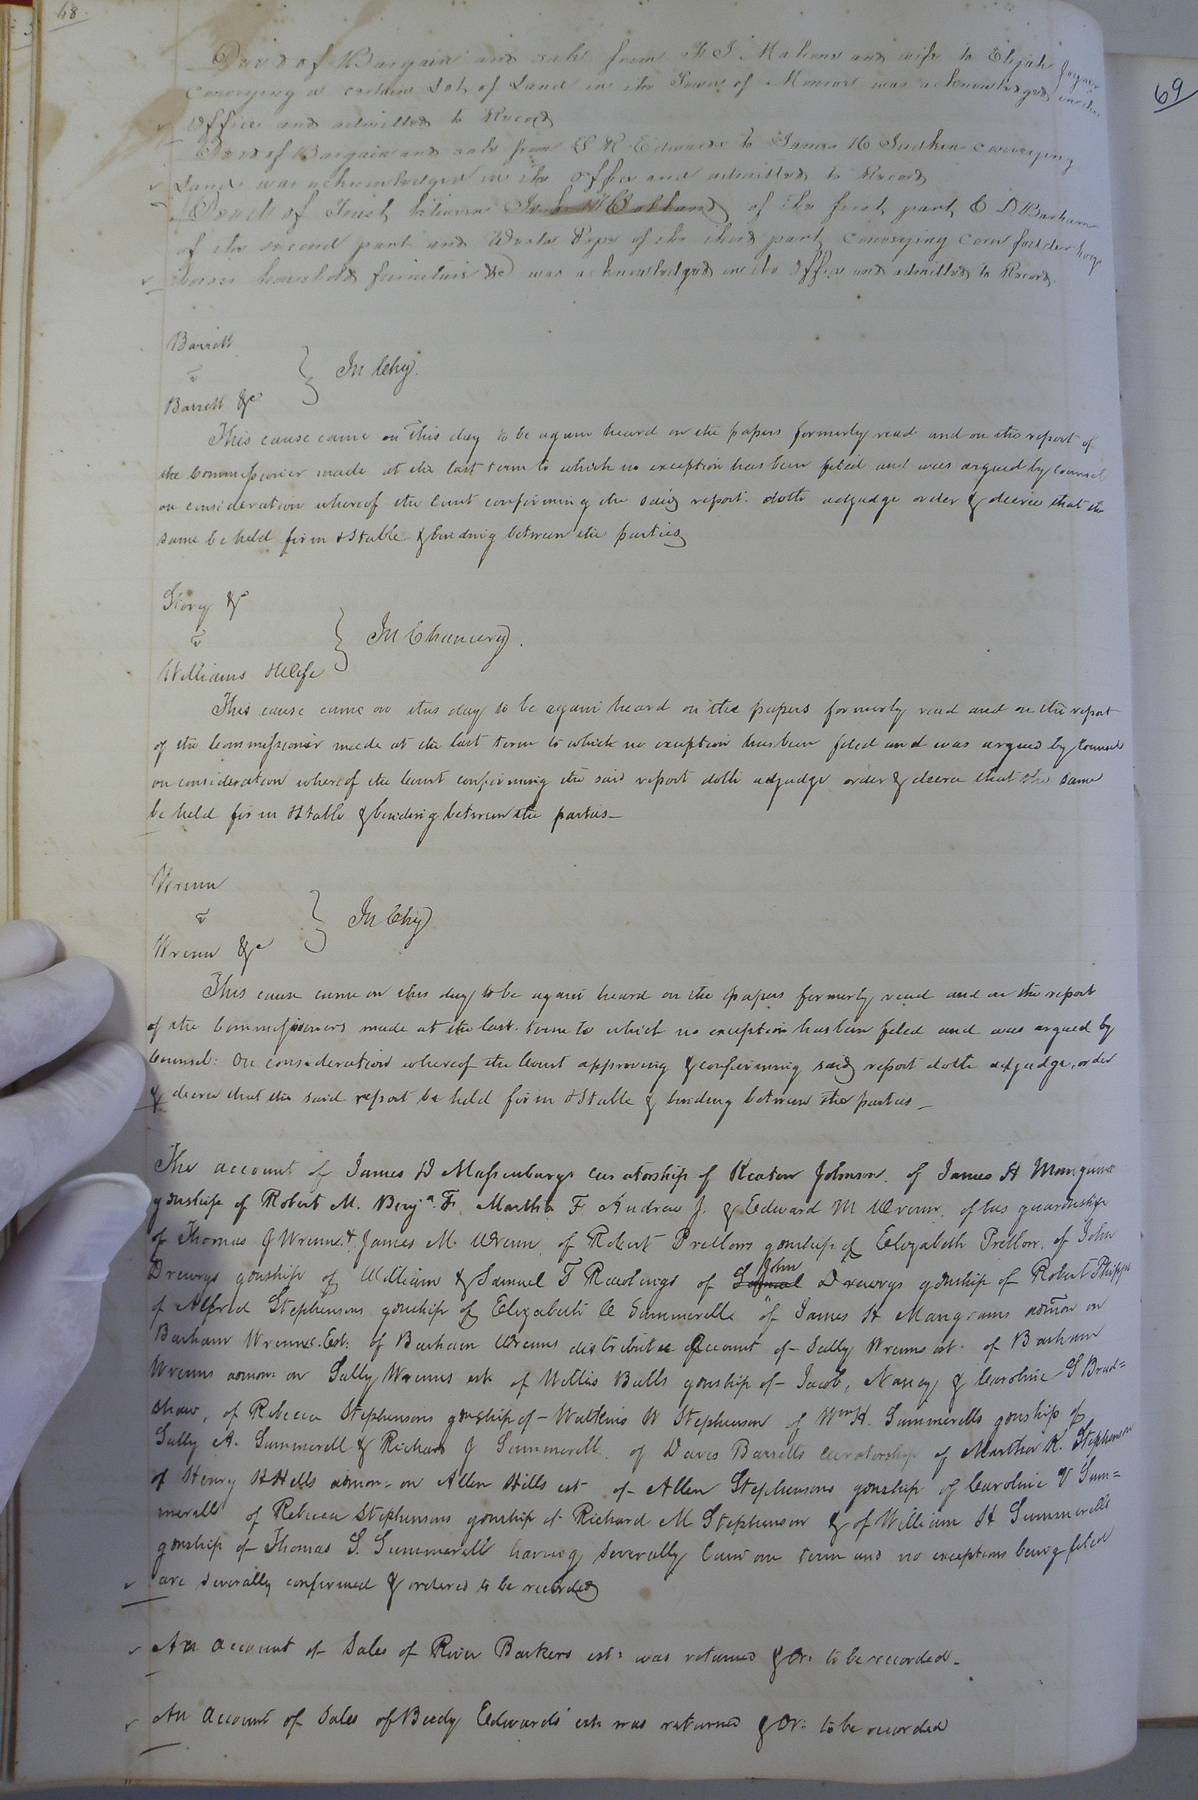 68
69
Deed of Bargain and sale from and wife to Elijah Joyner
conveying a certain Lot of Land in the Town of Monroe was acknowledged in the
office and admitted to Record
Deed of Bargain and sale from Edwards to James conveying
Land was acknowledged in the office and admitted to Record
Deed of Trust between of the first part Barham
of the second part and Pope of the third part conveying corn fodder hogs
horses household furniture &c was acknowledged in the office and admitted to Record
Barrett
v
Barrett &c
In Chy.
This cause came on this day to be again heard on the papers formerly read and on the report of
the Commissioner made at the last term to which no exception has been filed and was argued by Counsel
on consideration whereof the Court confirming the said report doth adjudge order & decree that the
same be held firm & stable & binding between the parties
Story &
v
Williams & Wife
In Chancery.
This cause came on this day to be again heard on the papers formerly read and on the report
of the Commissioner made at the last term to which no exception has been filed and was argued by Counsel
on consideration whereof the Court confirming the said report doth adjudge order & decree that the same
be held firm & stable & binding between the parties
Wrenn
v
Wrenn &c
In Chy
This cause came on this day to be again heard on the papers formerly read and on the report
of the Commissioners made at the last term to which no exception has been filed and was argued by
Counsel: On consideration whereof the Court approving & confirming said report doth adjudge, order
& decree that the said report be held firm & stable & binding between the parties
The account of James D Massenburgs curatorship of Keaton Johnson. of James H Mangums
gdnship of Robert M. Benja. F. Martha F Andrew J. & Edward M Wrenn. of his guardship
of Thomas J Wrenn & James M. Wrenn. of Robert Pretlows gdnship of Elizabeth Pretlow. of John
Drewrys gdnship of William & Samuel T Rawlings of Samuel John Drewrys gdnship of Robert Phipps
of Alfred Stephensons gdnship of Elizabeth C Summerelle of James H Mangrams admon on
Barham Wrenns Est. of Barham Wrenns distributee account of Sally Wrenns est. of Barham
Wrenns admon on Sally Wrenns est of Willis Bulls gdnship of Jacob, Nancy & Caroline S Brad=
shaw, of Rebecca Stephensons gdnship of Watkins W Stephenson of Wm H. Summerells gdnship of
Sally A. Summerell & Richard J Summerell. of Davis Barretts curatorship of Martha R. Stephenson
of Henry H Hills admon on Allen Hills est of Allen Stephensons gdnship of Caroline V Sum=
merell of Rebecca Stephensons gdnship of Richard M Stephenson & of William H Summerells
gdnship of Thomas S. Summerell having severally laid one term and no exceptions being filed
are severally confirmed & ordered to be recorded
An account of Sales of River Barkers est: was returned & Or. to be recorded
An Account of Sales of Beedy Edwards' est was returned & Or. to be recorded